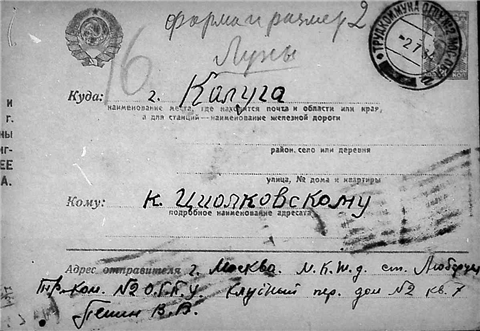 форма и размер 2
Луны
16
ТРУДКОММУНА ОГПУ №2 МОСКОВ
2.7.32
Куда: г. Калуга
наименование места, где находится почта и области или края,
а для станций—наименование железной дороги
район, село или деревня
улица, № дома и квартиры
Кому: К. Циолковскому
подробное наименование адресата
и
г.
ны
иг-
ЕЕ
А.
Адрес отправителя г. Москва. М.К.ж.д. ст. Люберцы
Тр. Ком. №2 О.Г.П.У Клубный пер. дом №2 кв. 7
В.В.